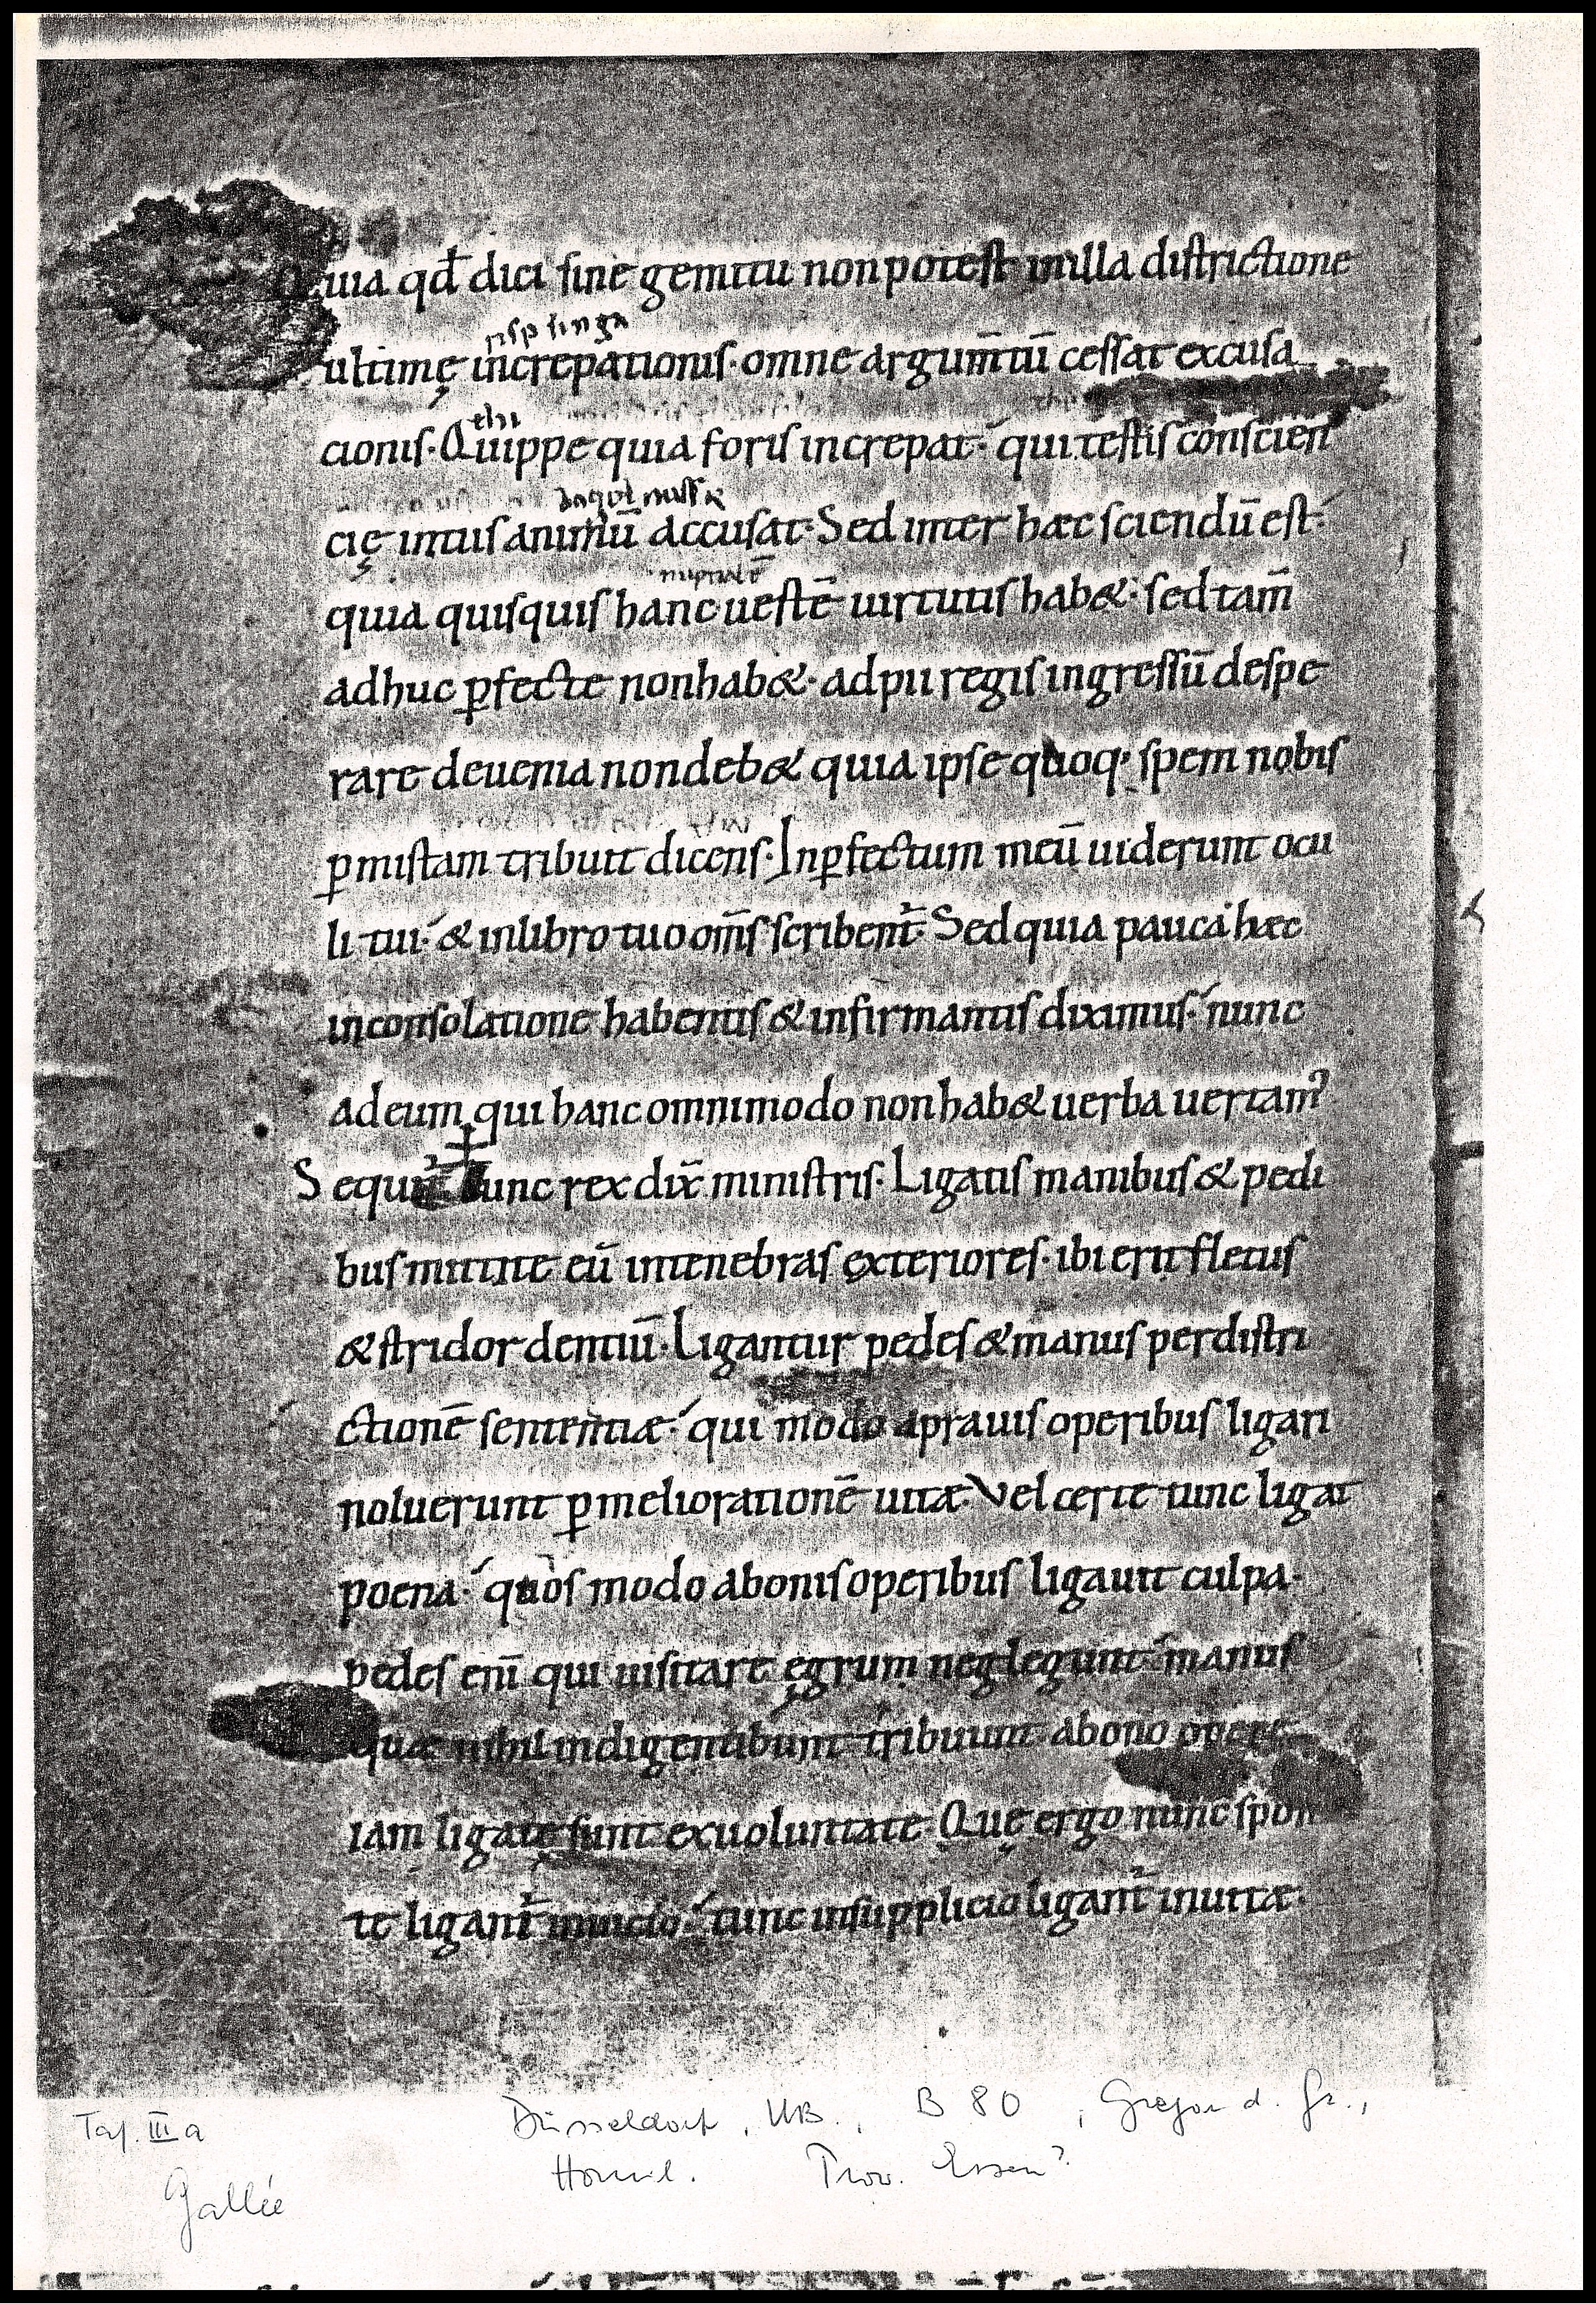 Quia qđ dici sine gemitu non potest in illa districtione
rispsinga
ultimę increpationis· omne argum̄tū cessat excusa
thi
cionis· Quippe quia foris increpat· qui testis conscien
cię intus animū accusat· Sed inter haec sciendū est·
nuptialē
quia quisquis hanc uestē uirtutis hab&· sed tam̄
adhuc ꝑfecte non hab&· ad pii regis ingressū despe
rare de uenia non deb& quia ipse quoq; spem nobis
ꝑ mistam tribuit dicens· Inꝑfectum meū uiderunt ocu
li tui· & in libro tuo om̄s scribent̄· Sed quia pauca haec
in consolatione habentis & infirmantis diximus· nunc
ad eum qui hanc omnimodo non hab& uerba uertam̄
Sequit̄ Tunc rex dix̄ ministris· Ligatis manibus & pedi
bus mittite eū in tenebras exteriores· ibi erit fletus
& stridor dentiū· Ligantur pedes & manus per distri
ctionē sententiæ· qui modo a prauis operibus ligari
noluerunt ꝑ meliorationē uitæ· Vel certe tunc ligat
poena· quos modo a bonis operibus ligauit culpa·
pedes enī qui uisitare ęgrum neglegunt· manus
quæ nihil indigentibunt tribuunt· a bono opere
iam ligatę sunt ex uoluntate· Quę ergo nunc spon
te ligant̄ in uicio· tunc in supplicio ligant̄ inuitæ·
Taf. III a
Düsseldorf, UB., B 80, Gregor d. Gr.,
Homil. Prov. Essen?
Gallée